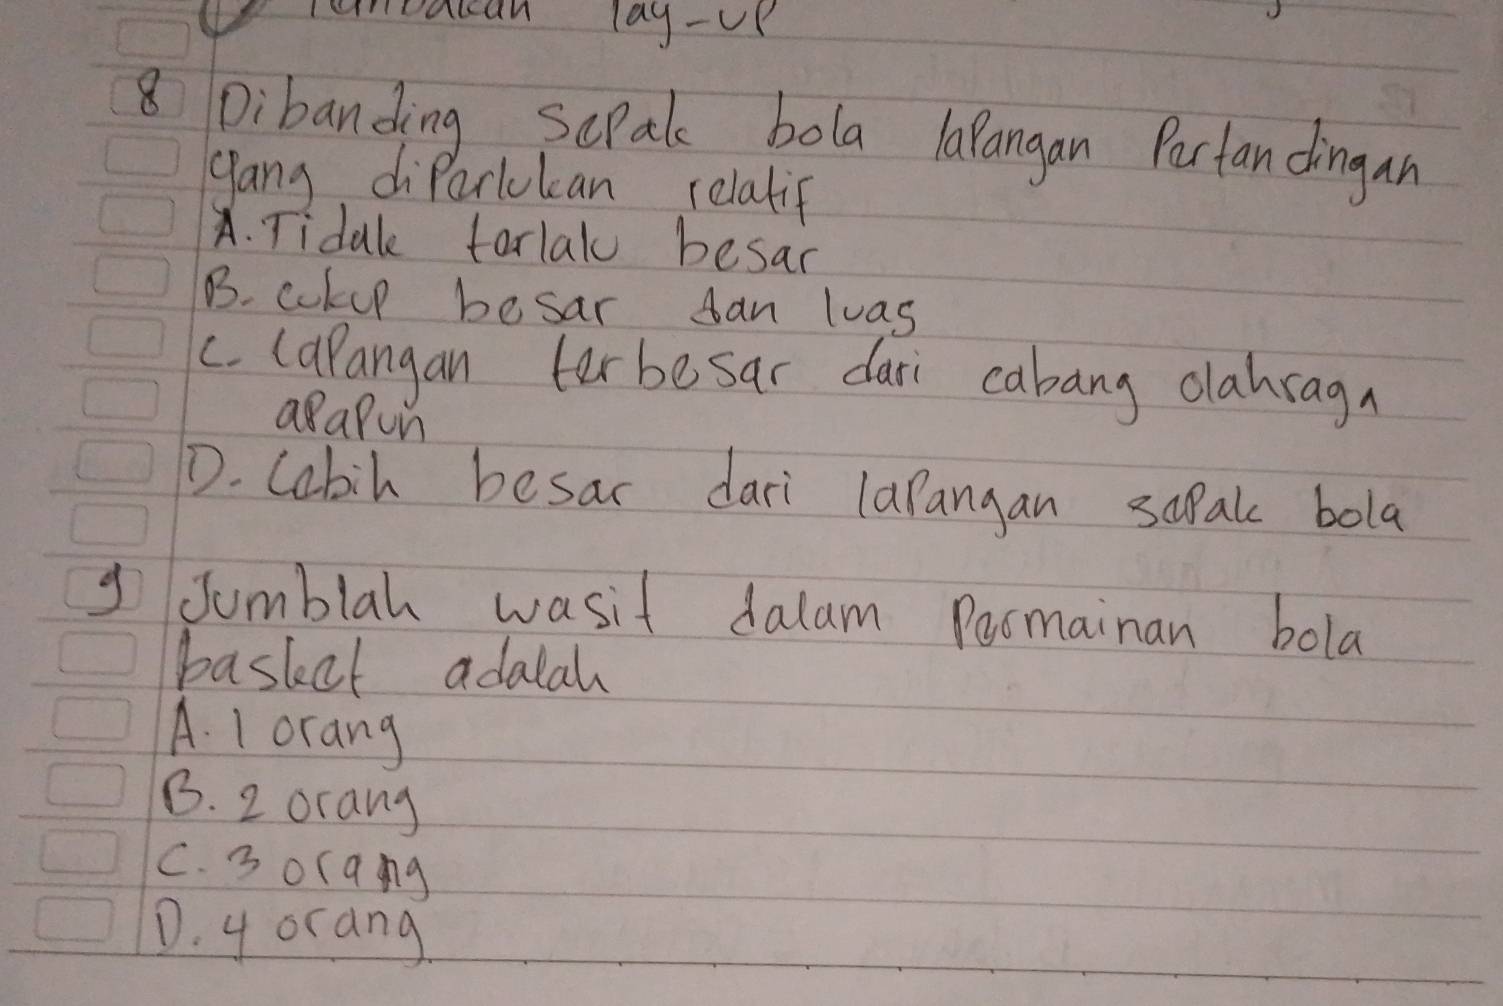 lay-up
8 Dibanding sepak bola lapangan Pertandingan
yang diperlukan relatif
A. Tidak terlalu besar
B. cukup besar dan luas
C. Lapangan terbesar dari cabang olahraga
apapun
D. Lebih besar dari lapangan sepak bola
9 Jumblah wasit dalam Permainan bola
basket adalah
A. 1 orang
B. 2 orang
C. 3 orang
D. 4 orang